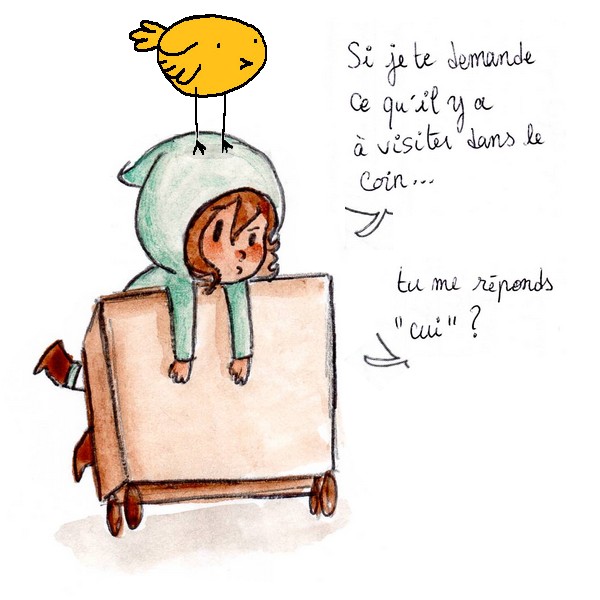 Si je te demande
ce qu'il y a
à visiter dans le
coin...
tu me réponds
"cui" ?